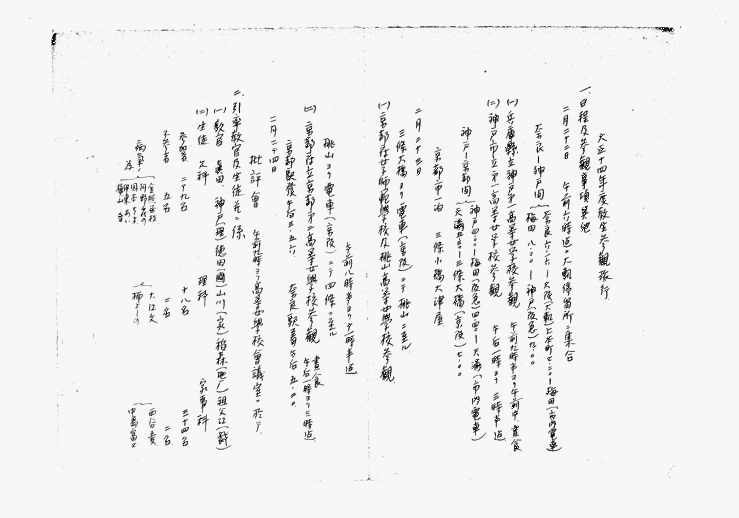 大正十四年度教生参観旅行
一、日程及参観事項其他
二月二十二日 午前六時迄ニ大軌停留所ニ集合
奈良―神戸間
神戸(阪急)
(一) 兵庫縣立神戸第一高等女学校参観 午前九時半ヨリ午前中 晝食
(二) 神戸市立第一高等女学校参観 午后一時ヨリ三時半迄
神戸―京都間
神戸四、〇〇―梅田(阪急)四、四〇―天満(市内電車)
天満五、〇〇―三條大橋(京阪)七、〇〇
京都市一泊 三條小橋大津屋
二月二十三日
三條大橋ヨリ電車(京阪)ニテ桃山ニ至ル
(一) 京都府女子師範学校及桃山高等女学校参観
午前八時半ヨリ十一時半迄
桃山ヨリ電車(京阪)ニテ四條ニ至ル
(二) 京都府立京都第二高等女学校参観 晝食 午后一時ヨリ三時迄
京都駅發午后三、五六 奈良駅着午后五、〇〇
二月二十四日
批評會 午前九時ヨリ高等女学校會議室ニ於テ
二、引率教官及生徒左ノ如
(一) 教官 眞田、神戸(理)徳田(國)山川(家)稻森(地)祖父江(計)
(二) 生徒 文科 理科 家事科
参加者 二十九名 十八名 三十四名
不参者 五名 二名 二名
病気